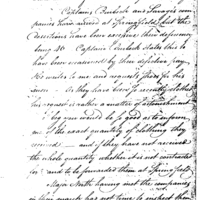 Captains Burbeck and Savage's com
panies have arrived at Springfield, but the
desertions have been excessive their deficiency
being 30 Captain Burbeck states this to
have been occasioned by their defective pay
He writes to me and requests for his
men. As they have been so recently clothed
his request is rather a matter of astonishment
I beg you would be so good as to inform
me of the exact quantity of clothing they
received and if they have not received
the whole quantity whether it is not contracted
for and to be forwarded them at Springfield
Major North having met the companies
on their march has not time to inspect them